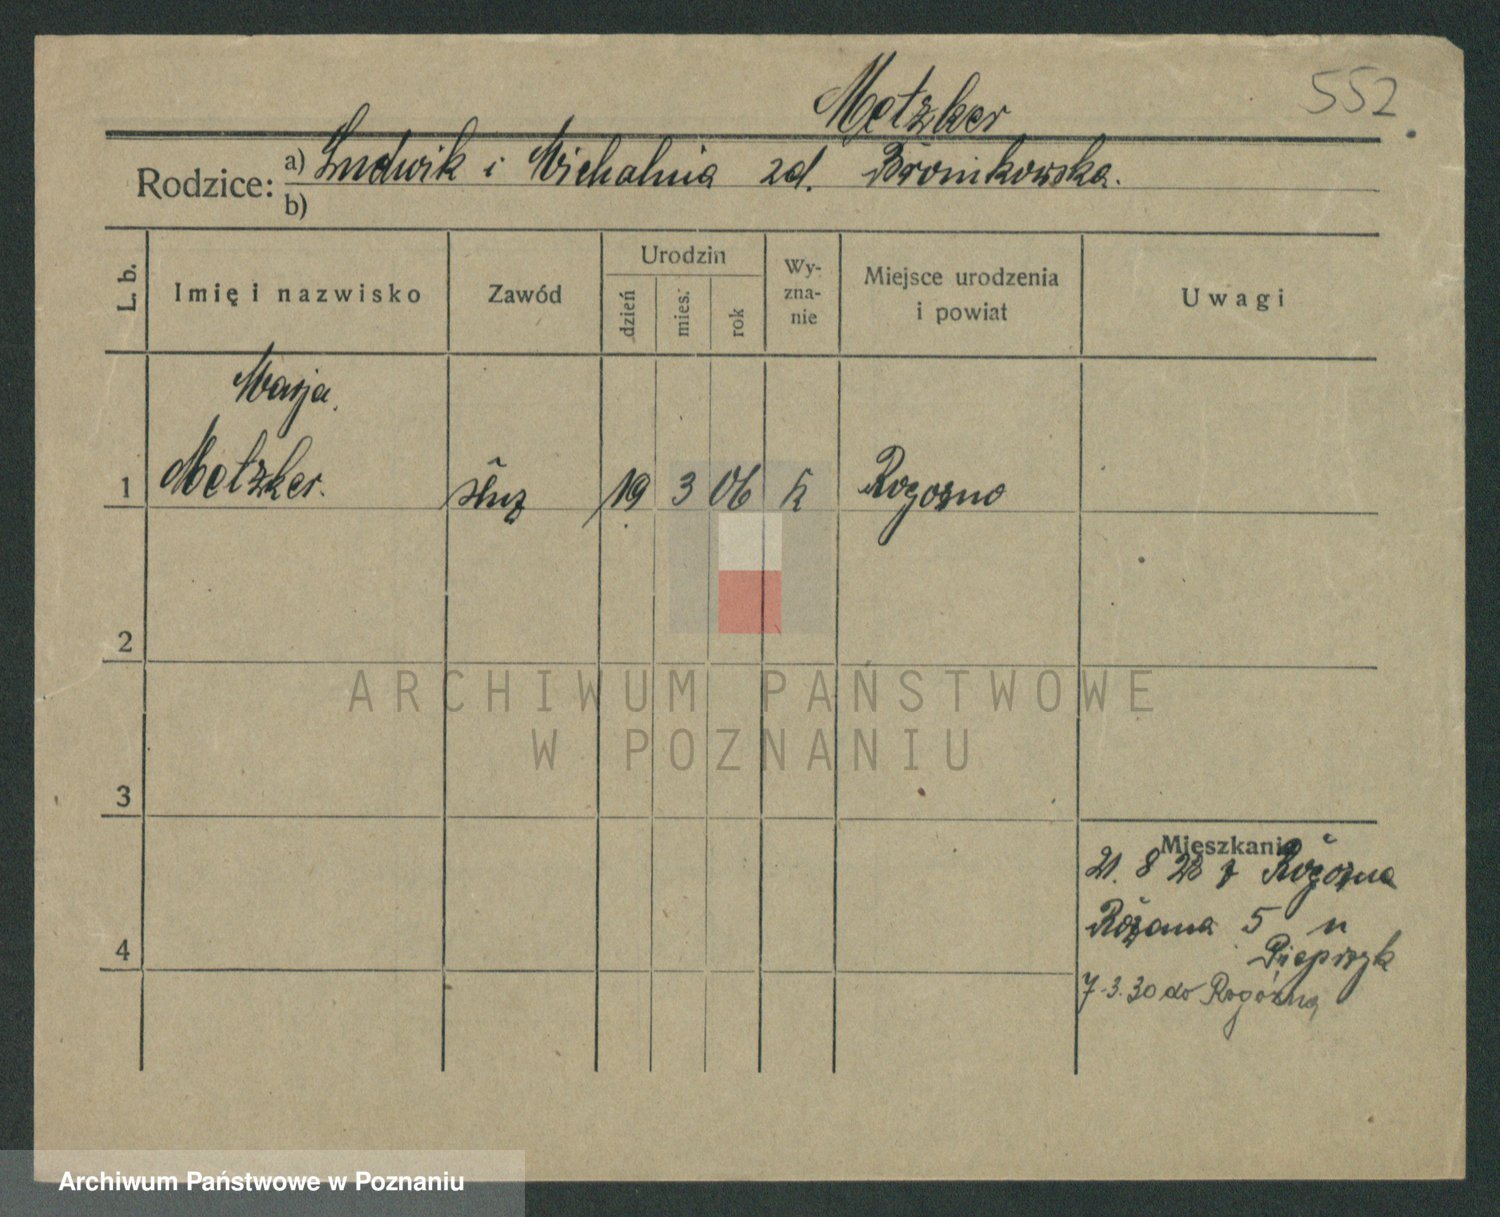 552
Metzker
Rodzice: a) Ludwik i Michalina zd. Bronikowska.
b)
L. b.
Imię i nazwisko
Zawód
Urodzin
dzień
mies.
rok
Wy-
zna-
nie
Miejsce urodzenia
i powiat
Uwagi
Marja
1 Metzker. służ 19 3 06 k Rogozno
2
ARCHIWUM PAŃSTWOWE
W POZNANIU
3
Mieszkanie
21. 8 28 z Rogozna
4 Różana 5 u
Pieprzyk
7.3.30 do Rogózna
Archiwum Państwowe w Poznaniu